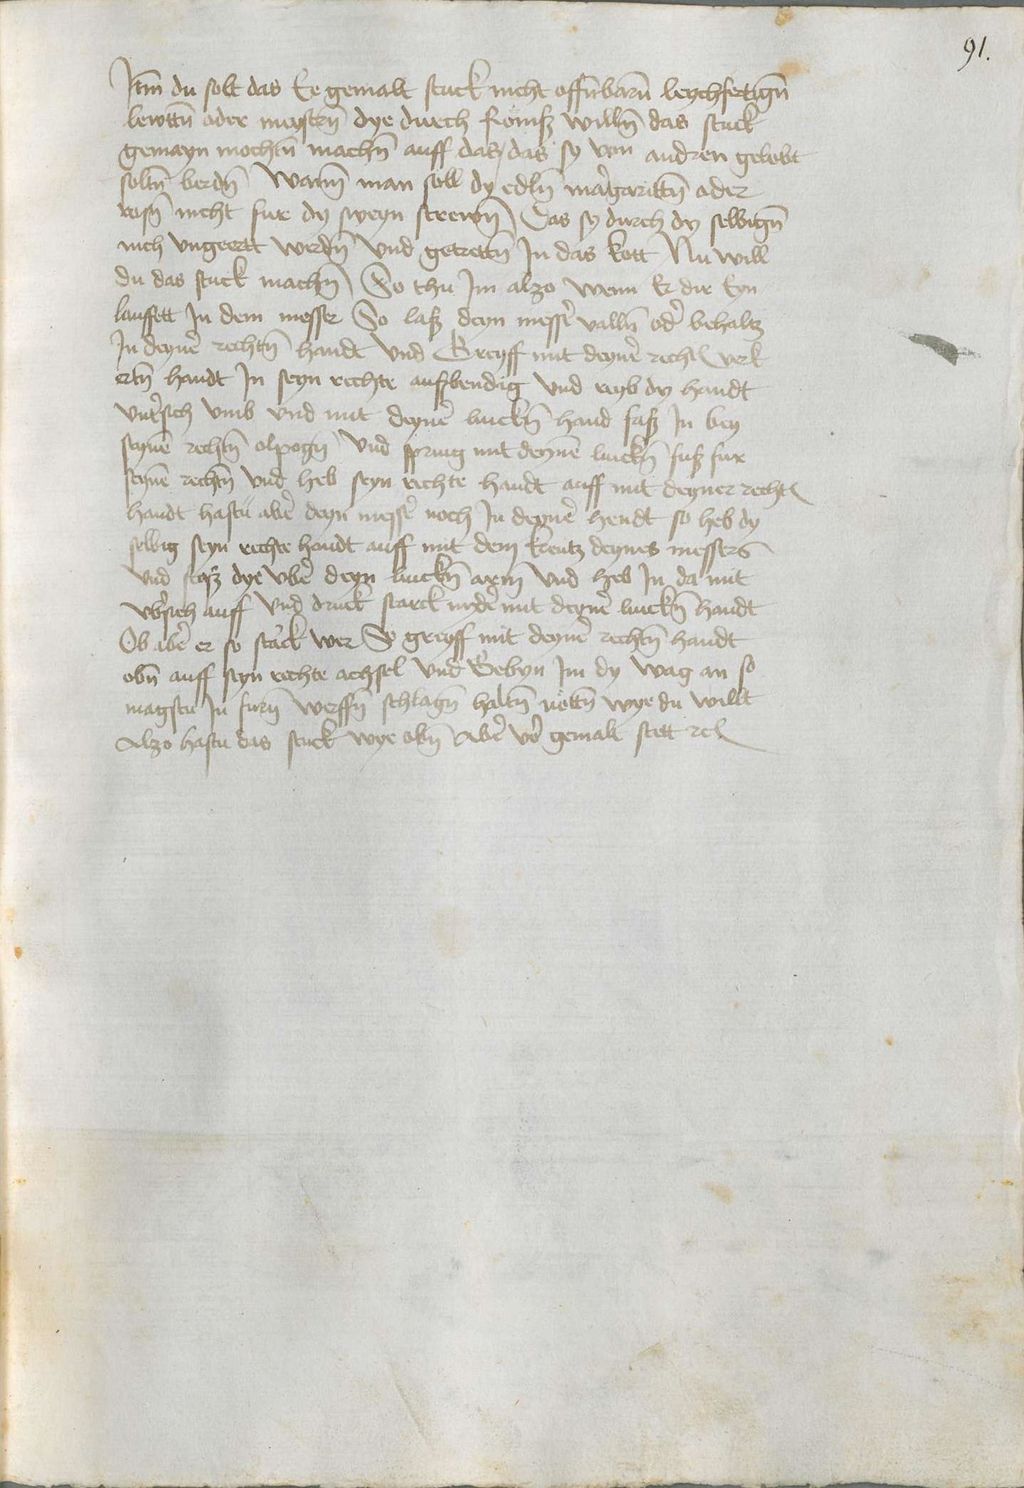 91.
Itm̄ du solt das Ee gemalt stuck nicht offñbarñ leychfertigñ
lewttñ oder meystrñ dye durch Romß willñ das stuck
gemayn mochtñ machñ auff das / das sy von andren gelobt
soltñ berdñ Wann man soll dy edlñ margarittñ oder
rosñ nicht fur dy sweyn strewñ Das sy durch dy selbigñ
nich vngeertt werdñ vnd getrettñ In das kott Nu will
du das stuck machñ So thu Im alzo wenn Er dir Eyn
lauffett In dem messer So laß deyn messẽr vallñ odẽr behaltz
In deynẽr rechtñ handt vnd Greyff mit deynẽr recht verk
ertñ handt In seyn rechte außbendig vnd reyb dy handt
vntẽrsich vmb vnd mit deynẽr linckñ hand faß In bey
seynẽ rechtñ olpogñ vnd spring mit deynẽ linckñ fuß fur
seynẽ rechtñ vnd heb seyn rechte handt auff mit deyner recht
handt hastu abẽr deyn messẽr noch In deynẽr hendt so heb dy
selbig seyn rechte handt auff mit dem kreutz deynes messers
vnd stoß dye vbẽr deyn linckñ arm vnd heb In da mit
vbẽrsich auff vnd druck starck nydẽr mit deynẽr linckñ handt
Ob abẽr er so stack wer So greyff mit deynẽr rechtñ handt
obñ auff seyn rechte achsel vnd Gebyn Im dy wag an so
magstu In furñ werffñ schlagñ haltñ nöttñ wye du willt
Alzo hastu das stuck wye obñ Abẽr vor gemalt stett rc